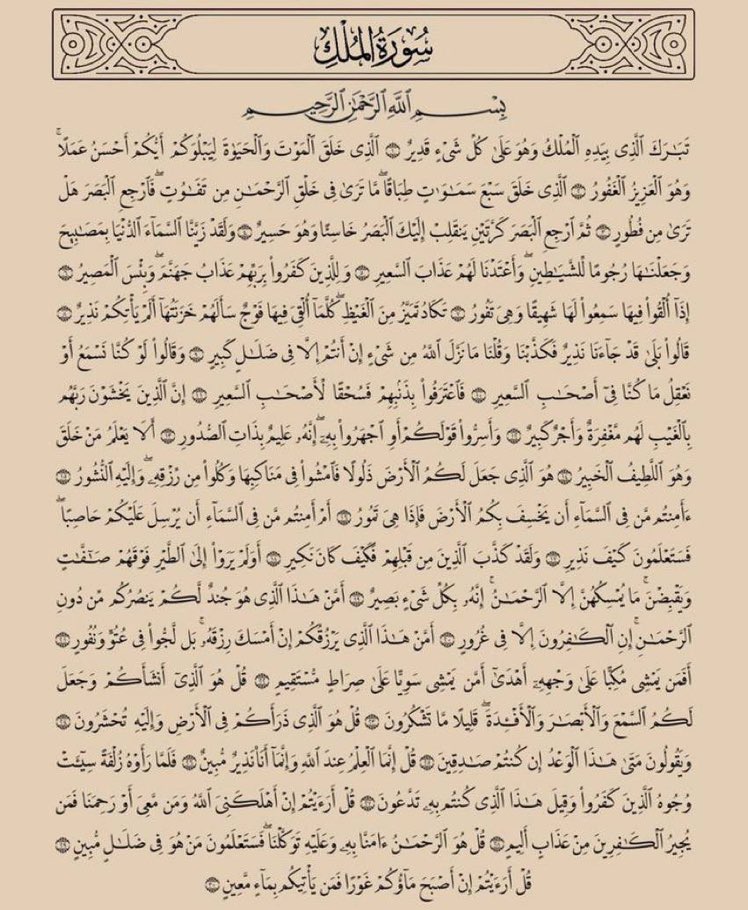 سُورَةُ الْمُلْكِ
بِسْمِ اللَّهِ الرَّحْمَٰنِ الرَّحِيمِ
تَبَٰرَكَ ٱلَّذِى بِيَدِهِ ٱلْمُلْكُ وَهُوَ عَلَىٰ كُلِّ شَىْءٍ قَدِيرٌ ۝١ ٱلَّذِى خَلَقَ ٱلْمَوْتَ وَٱلْحَيَوٰةَ لِيَبْلُوَكُمْ أَيُّكُمْ أَحْسَنُ عَمَلًا ۚ
وَهُوَ ٱلْعَزِيزُ ٱلْغَفُورُ ۝٢ ٱلَّذِى خَلَقَ سَبْعَ سَمَٰوَٰتٍ طِبَاقًا ۖ مَّا تَرَىٰ فِى خَلْقِ ٱلرَّحْمَٰنِ مِن تَفَٰوُتٍ ۖ فَٱرْجِعِ ٱلْبَصَرَ هَلْ
تَرَىٰ مِن فُطُورٍ ۝٣ ثُمَّ ٱرْجِعِ ٱلْبَصَرَ كَرَّتَيْنِ يَنقَلِبْ إِلَيْكَ ٱلْبَصَرُ خَاسِئًا وَهُوَ حَسِيرٌ ۝٤ وَلَقَدْ زَيَّنَّا ٱلسَّمَآءَ ٱلدُّنْيَا بِمَصَٰبِيحَ
وَجَعَلْنَٰهَا رُجُومًا لِّلشَّيَٰطِينِ ۖ وَأَعْتَدْنَا لَهُمْ عَذَابَ ٱلسَّعِيرِ ۝٥ وَلِلَّذِينَ كَفَرُوا۟ بِرَبِّهِمْ عَذَابُ جَهَنَّمَ ۖ وَبِئْسَ ٱلْمَصِيرُ ۝٦
إِذَآ أُلْقُوا۟ فِيهَا سَمِعُوا۟ لَهَا شَهِيقًا وَهِىَ تَفُورُ ۝٧ تَكَادُ تَمَيَّزُ مِنَ ٱلْغَيْظِ ۖ كُلَّمَآ أُلْقِىَ فِيهَا فَوْجٌ سَأَلَهُمْ خَزَنَتُهَآ أَلَمْ يَأْتِكُمْ نَذِيرٌ ۝٨
قَالُوا۟ بَلَىٰ قَدْ جَآءَنَا نَذِيرٌ فَكَذَّبْنَا وَقُلْنَا مَا نَزَّلَ ٱللَّهُ مِن شَىْءٍ إِنْ أَنتُمْ إِلَّا فِى ضَلَٰلٍ كَبِيرٍ ۝٩ وَقَالُوا۟ لَوْ كُنَّا نَسْمَعُ أَوْ
نَعْقِلُ مَا كُنَّا فِىٓ أَصْحَٰبِ ٱلسَّعِيرِ ۝١٠ فَٱعْتَرَفُوا۟ بِذَنۢبِهِمْ فَسُحْقًا لِّأَصْحَٰبِ ٱلسَّعِيرِ ۝١١ إِنَّ ٱلَّذِينَ يَخْشَوْنَ رَبَّهُم
بِٱلْغَيْبِ لَهُم مَّغْفِرَةٌ وَأَجْرٌ كَبِيرٌ ۝١٢ وَأَسِرُّوا۟ قَوْلَكُمْ أَوِ ٱجْهَرُوا۟ بِهِۦٓ ۖ إِنَّهُۥ عَلِيمٌۢ بِذَاتِ ٱلصُّدُورِ ۝١٣ أَلَا يَعْلَمُ مَنْ خَلَقَ
وَهُوَ ٱللَّطِيفُ ٱلْخَبِيرُ ۝١٤ هُوَ ٱلَّذِى جَعَلَ لَكُمُ ٱلْأَرْضَ ذَلُولًا فَٱمْشُوا۟ فِى مَنَاكِبِهَا وَكُلُوا۟ مِن رِّزْقِهِۦ ۖ وَإِلَيْهِ ٱلنُّشُورُ ۝١٥
ءَأَمِنتُم مَّن فِى ٱلسَّمَآءِ أَن يَخْسِفَ بِكُمُ ٱلْأَرْضَ فَإِذَا هِىَ تَمُورُ ۝١٦ أَمْ أَمِنتُم مَّن فِى ٱلسَّمَآءِ أَن يُرْسِلَ عَلَيْكُمْ حَاصِبًا ۖ
فَسَتَعْلَمُونَ كَيْفَ نَذِيرِ ۝١٧ وَلَقَدْ كَذَّبَ ٱلَّذِينَ مِن قَبْلِهِمْ فَكَيْفَ كَانَ نَكِيرِ ۝١٨ أَوَلَمْ يَرَوْا۟ إِلَى ٱلطَّيْرِ فَوْقَهُمْ صَٰٓفَّٰتٍ
وَيَقْبِضْنَ ۚ مَا يُمْسِكُهُنَّ إِلَّا ٱلرَّحْمَٰنُ ۚ إِنَّهُۥ بِكُلِّ شَىْءٍۭ بَصِيرٌ ۝١٩ أَمَّنْ هَٰذَا ٱلَّذِى هُوَ جُندٌ لَّكُمْ يَنصُرُكُم مِّن دُونِ
ٱلرَّحْمَٰنِ ۚ إِنِ ٱلْكَٰفِرُونَ إِلَّا فِى غُرُورٍ ۝٢٠ أَمَّنْ هَٰذَا ٱلَّذِى يَرْزُقُكُمْ إِنْ أَمْسَكَ رِزْقَهُۥ ۚ بَل لَّجُّوا۟ فِى عُتُوٍّ وَنُفُورٍ ۝٢١
أَفَمَن يَمْشِى مُكِبًّا عَلَىٰ وَجْهِهِۦٓ أَهْدَىٰٓ أَمَّن يَمْشِى سَوِيًّا عَلَىٰ صِرَٰطٍ مُّسْتَقِيمٍ ۝٢٢ قُلْ هُوَ ٱلَّذِىٓ أَنشَأَكُمْ وَجَعَلَ
لَكُمُ ٱلسَّمْعَ وَٱلْأَبْصَٰرَ وَٱلْأَفْـِٔدَةَ ۖ قَلِيلًا مَّا تَشْكُرُونَ ۝٢٣ قُلْ هُوَ ٱلَّذِى ذَرَأَكُمْ فِى ٱلْأَرْضِ وَإِلَيْهِ تُحْشَرُونَ ۝٢٤
وَيَقُولُونَ مَتَىٰ هَٰذَا ٱلْوَعْدُ إِن كُنتُمْ صَٰدِقِينَ ۝٢٥ قُلْ إِنَّمَا ٱلْعِلْمُ عِندَ ٱللَّهِ وَإِنَّمَآ أَنَا۠ نَذِيرٌ مُّبِينٌ ۝٢٦ فَلَمَّا رَأَوْهُ زُلْفَةً سِيٓـَٔتْ
وُجُوهُ ٱلَّذِينَ كَفَرُوا۟ وَقِيلَ هَٰذَا ٱلَّذِى كُنتُم بِهِۦ تَدَّعُونَ ۝٢٧ قُلْ أَرَءَيْتُمْ إِنْ أَهْلَكَنِىَ ٱللَّهُ وَمَن مَّعِىَ أَوْ رَحِمَنَا فَمَن
يُجِيرُ ٱلْكَٰفِرِينَ مِنْ عَذَابٍ أَلِيمٍ ۝٢٨ قُلْ هُوَ ٱلرَّحْمَٰنُ ءَامَنَّا بِهِۦ وَعَلَيْهِ تَوَكَّلْنَا ۖ فَسَتَعْلَمُونَ مَنْ هُوَ فِى ضَلَٰلٍ مُّبِينٍ ۝٢٩
قُلْ أَرَءَيْتُمْ إِنْ أَصْبَحَ مَآؤُكُمْ غَوْرًا فَمَن يَأْتِيكُم بِمَآءٍ مَّعِينٍۭ ۝٣٠